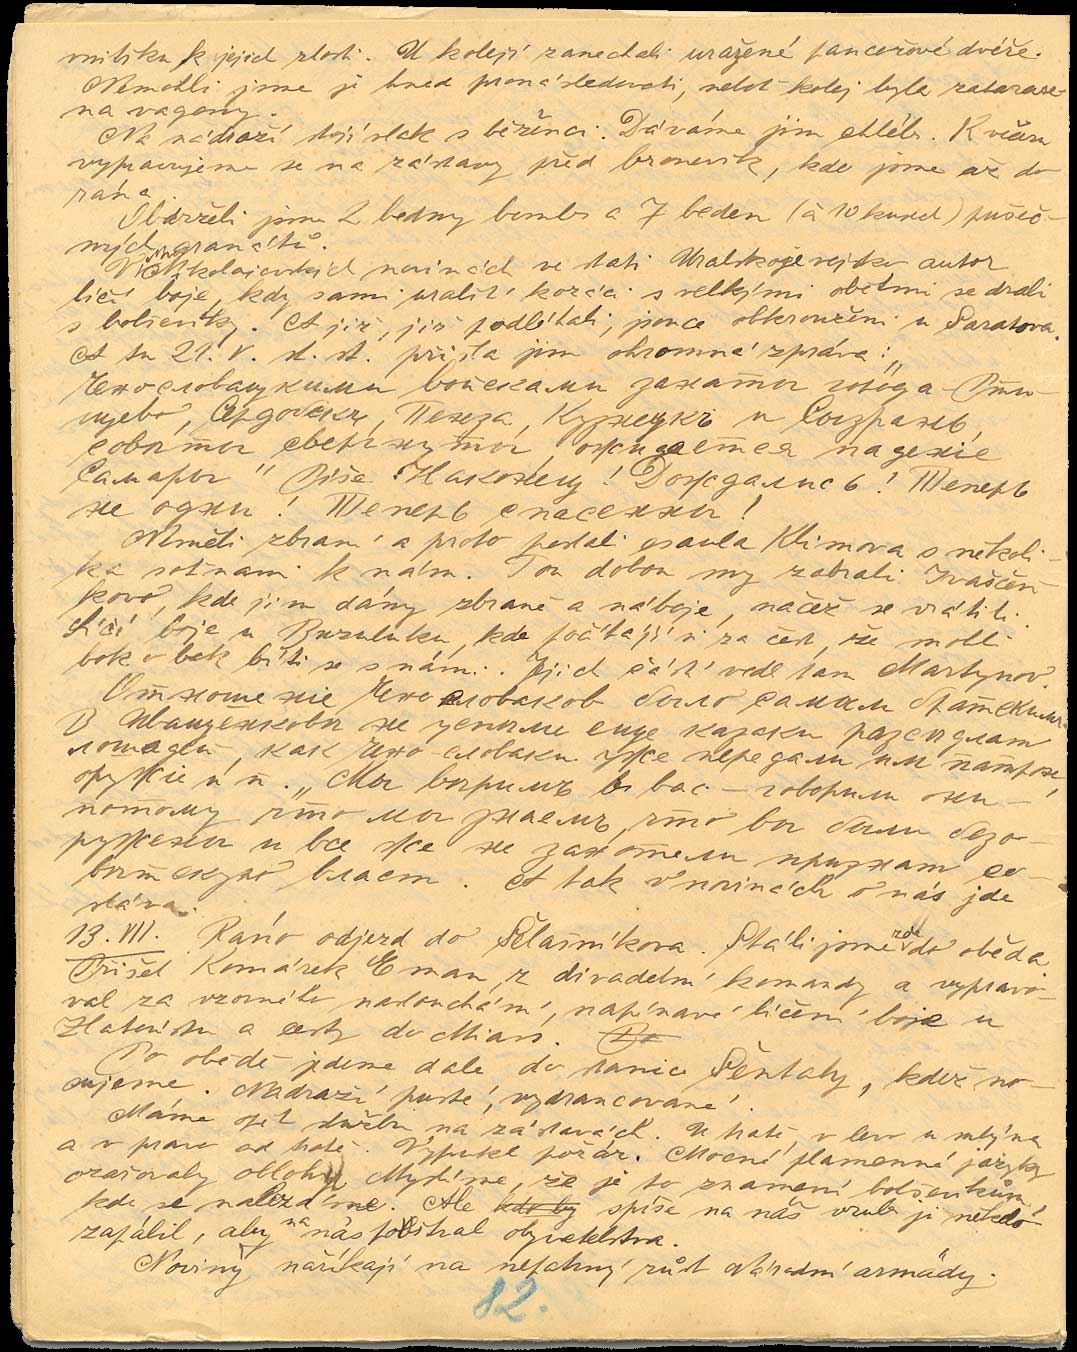 mitiku k jejich zlosti. U kolejí zanechali uražené pancéřové dvéře.
Nemohli jsme je hned pronásledovati, neboť kolej byla zatarase-
na vagony.
Na nádraží stojí vlak s běženci. Dáváme jim chléb. K večeru
vypravujeme se na zástavy před bronevik, kde jsme až do
rána.
Obdrželi jsme 2 bedny bomb a 7 beden (à 10 kusech) pušeč-
ných granátů.
V Nikolajevských novinách ve stati Uralskoje vojsko autor
líčí boje, kdy sami uralští kozáci s velkými obětmi se drali
s bolševíky. A již, již podléhali, jsouce obklouženi u Saratova.
A tu 21. V. st. st. přišla jim ohromná zpráva: „
Чехословацкими войсками заняты города Рти-
щево, Сердобскъ, Пенза, Кузнецкъ и Сызрань,
совѣты свергнуты, ожидается паденіе
Самары" Píše: Наконецъ! Дождались! Теперь
не одни! Теперь спасенны!
Neměli zbraní a proto poslali esaula Klimova s několi-
ka sotnami k nám. Tou dobou my zabrali Ivaščen-
kovo, kde jim dány zbraně a náboje, načež se vrátili.
Líčí boje u Buzuluku, kde počítají si za čest, že mohli
bok o bok bíti se s námi. Jejich části vedl tam Martynov.
Отношеніе Чехословаковъ было самым братским.
В Иващенковѣ не успѣли еще казаки разсѣдлат
лошадей, как чехо-словаки уже передали им патроны,
оружіе и п. „Мы вѣримъ в вас – говорили они –
потому что мы знаемъ, что вы были безо-
ружены и все же не захотели признат со-
вѣтскую власт. A tak v novinách o nás jde
sláva.
13. VII. Ráno odjezd do Tolašnikova. Stáli jsme zde do oběda.
Přišel Komárek Eman z divadelní komandy a vypravo-
val za vzorného naslouchání, napínavé líčení boje u
Zlatoustu a cesty do Miass. Po
Po obědě jedeme dále do stanice Šentaly, kdež no-
cujeme. Nádraží pusté, vydrancované.
Máme opět službu na zástavách. U trati, v levo u mlýna
a v pravo od trati. Vypukl požár. Mocné plamenné jazyky
ozařovaly oblohu. Myslíme, že je to znamení bolševikům,
kde se nalézáme. Ale kdo by spíše na náš vrub jí někdo
zapálil, aby na nás poštval obyvatelstvo.
Noviny naříkají na nepatrný růst národní armády.
82.